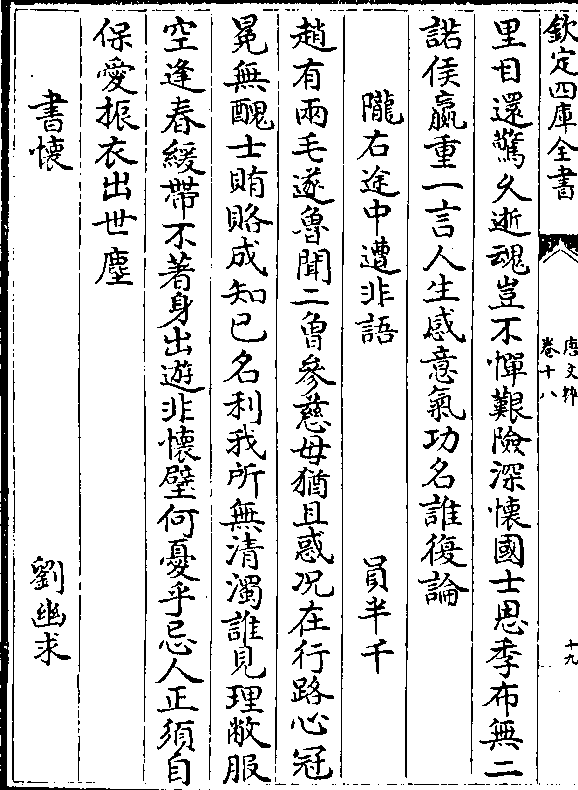 欽定四庫全書
唐文粹
卷十八
十九
里目還驚久逝魂豈不憚艱險深懷國士恩季布無二
諾侯嬴重一言人生感意氣功名誰復論
隴右途中遭非語 員半千
趙有兩毛遂魯聞二曾參慈母猶且惑况在行路心冠
冕無醜士賄賂成知已名利我所無清濁誰見理敝服
空逢春緩帶不著身出遊非懷璧何憂乎忌人正須自
保愛振衣出世塵
書懷 劉幽求